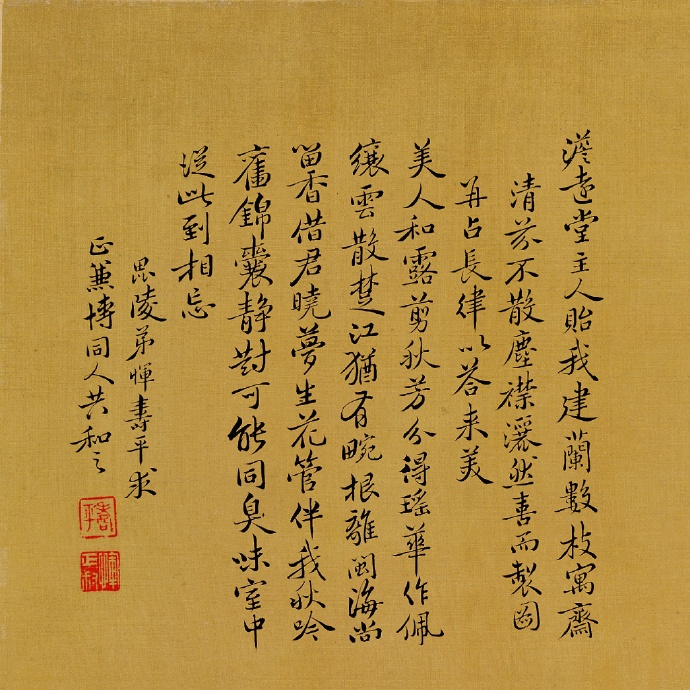 澹遠堂主人貽我建蘭數枝寓齋
清芬不散塵襟灑然喜而製圖
再占長律以答来美
美人和露剪秋芳分得瑶華作佩
纕雲散楚江猶有畹根離閩海尚
留香借君曉夢生花管伴我秋吟
舊錦囊靜對可能同臭味室中
從此到相忘
毘陵弟惲壽平求
正兼博同人共和之
壽平
惲正叔